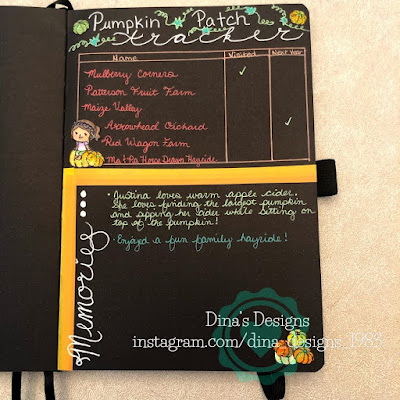 Pumpkin Patch
tracker
Name Visited Next Year
Mulberry Corners
Patterson Fruit Farm
Maize Valley
Arrowhead Orchard
Red Wagon Farm
Ma & Pa Horse Drawn Hayride
Memories
• Justina loves warm apple cider.
She loves finding the largest pumpkin
and sipping her cider while sitting on
top of the pumpkin!
• Enjoyed a fun family hayride!
Dina's Designs
instagram.com/dina_designs_1985